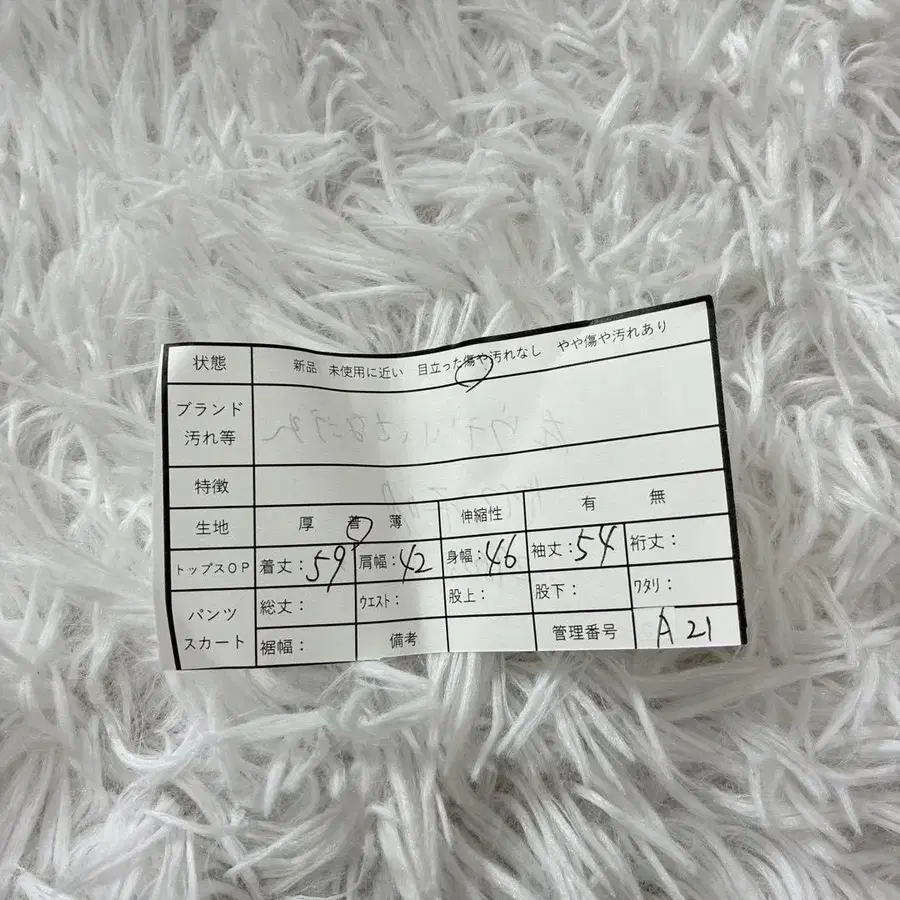 状態 新品 未使用に近い 目立った傷や汚れなし やや傷や汚れあり
ブランド
汚れ等
特徴
生地 厚 普 薄 伸縮性 有 無
トップスOP 着丈:59 肩幅:42 身幅:46 袖丈:54 裄丈:
パンツ
スカート
総丈: ウエスト: 股上: 股下: ワタリ:
裾幅: 備考 管理番号 A 21